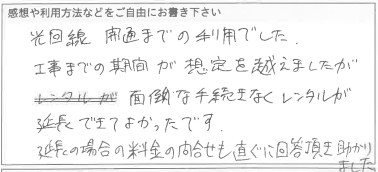 感想や利用方法などをご自由にお書き下さい
光回線 開通までの利用でした.
工事までの期間が想定を越えましたが
レンタルが 面倒な手続きなくレンタルが
延長できてよかったです.
延長の場合の料金の問合せも直ぐに回答頂き助かり
ました